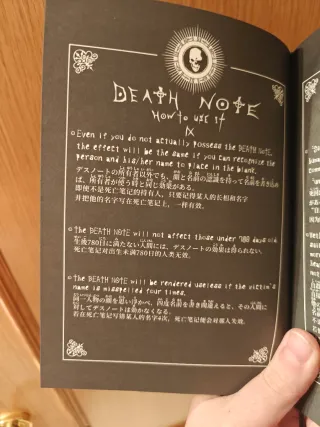 DEATH NOTE
HOW to USE it
IX
Even if you do not actually possess the DEATH NOTE,
the effect will be the same if you can recognize the
person and his/her name to place in the blank.
デスノートの所有者以外でも、顔と名前の認識を持って名前を書き込め
ば、所有者が使う時と同じ効果がある。
即使不是死亡笔记的持有人,只要记得某人的长相和名字
并把他的名字写在死亡笔记上,一样有效。
the DEATH NOTE will not affect those under 780 days old.
生後780日に満たない人間には、デスノートの効果は得られない。
死亡笔记对出生未满780日的人类无效。
the DEATH NOTE will be rendered useless if the victim's
name is misspelled four times.
同一人物の顔を思い浮かべ、四度名前を書き間違えると、その人間に
対してデスノートは効かなくなる。
若在死亡笔记写错某人的名字4次,死亡笔记便会对那人失效。